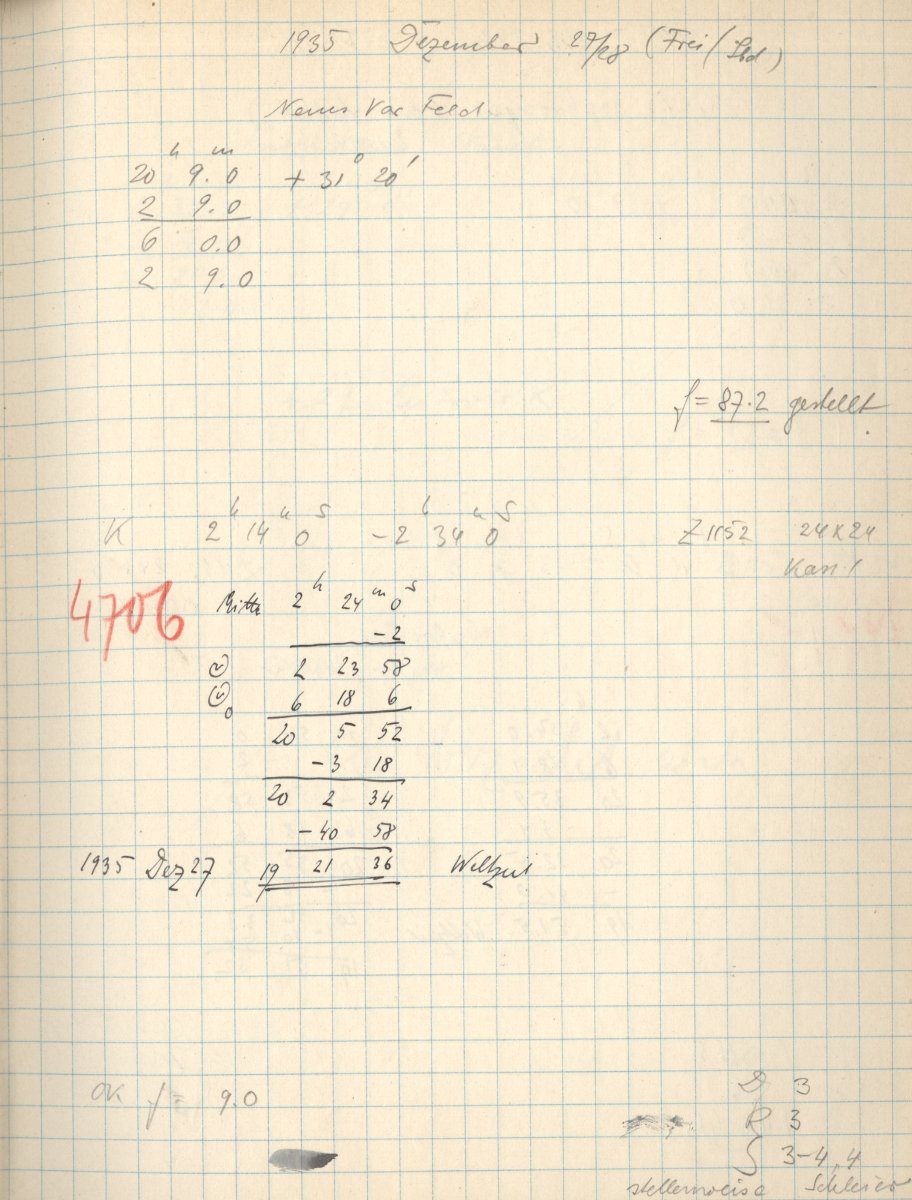 1935 Dezember 27/28 (Frei/Sbd)
Neues Var Feld
20ʰ 9.0ᵐ + 31° 20'
2 9.0
6 0.0
2 9.0
f = 87.2 gestellt
K 2ʰ 14ᵐ 0ˢ - 2ʰ 34ᵐ 0ˢ Z 1152 24x24
Kass 1
4706 Mitte 2ʰ 24ᵐ 0ˢ
- 2
2 23 58
6 18 6
20 5 52
- 3 18
20 2 34
- 40 58
1935 Dez 27 19 21 36 Weltzeit
OK f = 9.0
D 3
R 3
S 3-4, 4
stellenweise Schleier